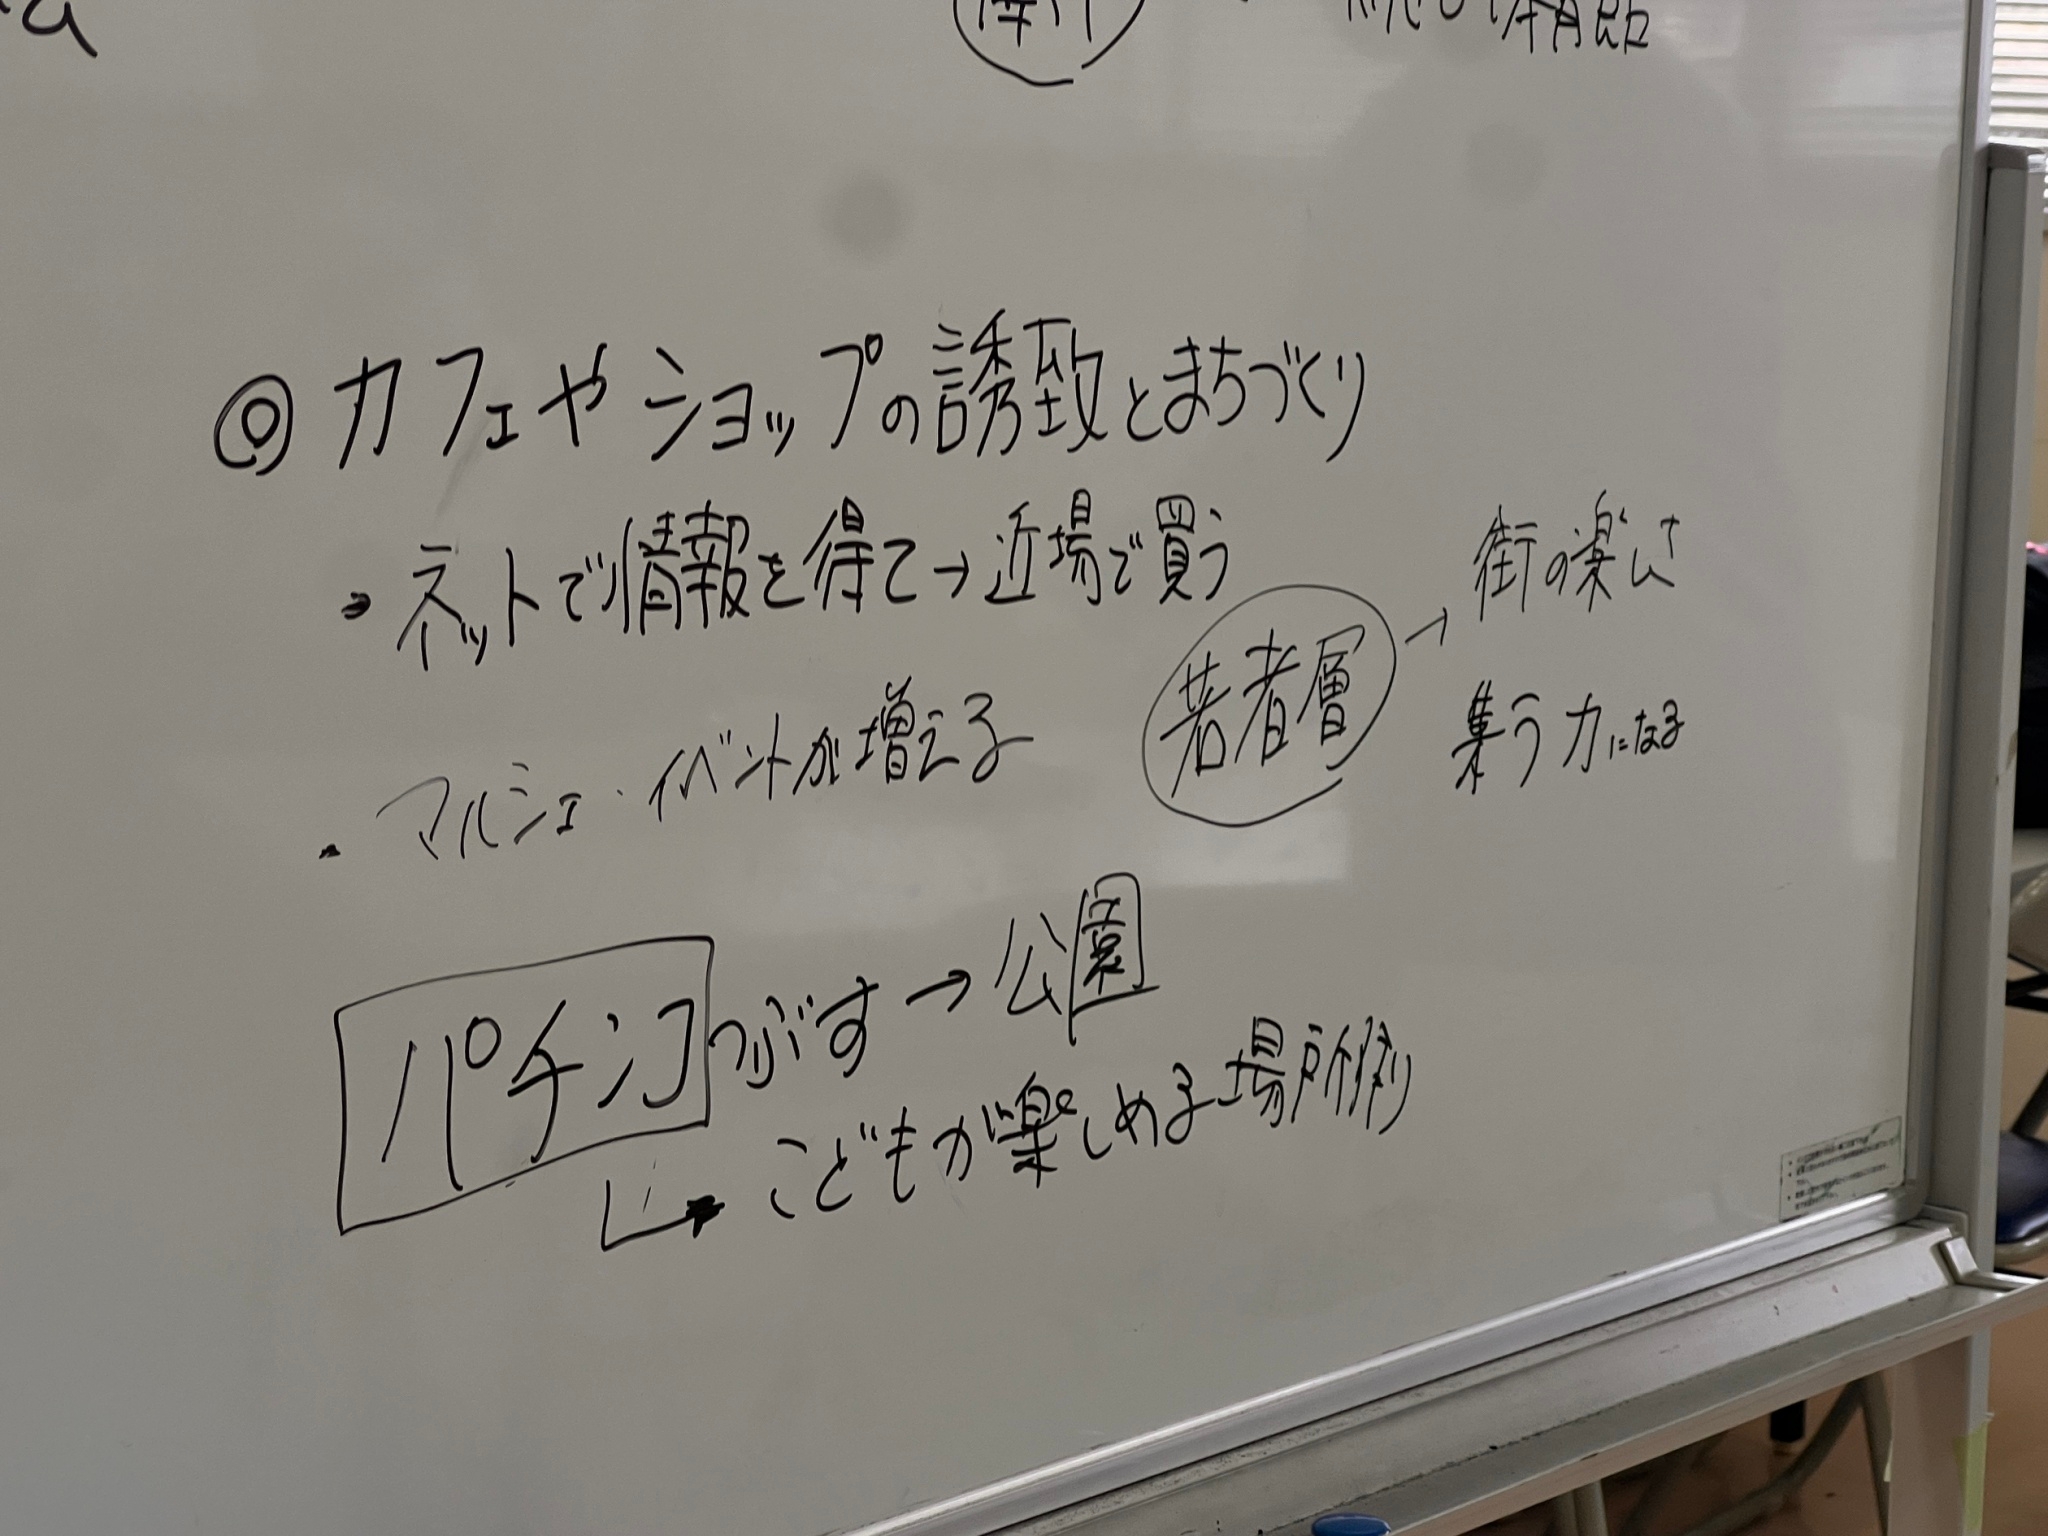 ◎カフェやショップの誘致とまちづくり
・ネットで情報を得て→近場で買う
若者層→街の楽しさ
集う力になる
・マルシェ・イベントが増える
パチンコつぶす→公園
こどもが楽しめる場所